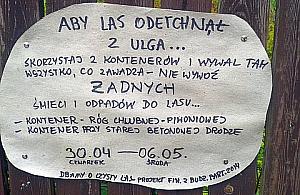 ABY LAS ODETCHNĄŁ
Z ULGĄ...
SKORZYSTAJ Z KONTENERÓW I WYWAL TAM
WSZYSTKO, CO ZAWADZA - NIE WYWOŹ
ŻADNYCH
ŚMIECI I ODPADÓW DO LASU...
- KONTENER - RÓG CHLUBNEJ - PIWONIOWEJ
- KONTENER PRZY STAREJ BETONOWEJ DRODZE
30.04 — 06.05.
CZWARTEK ŚRODA
DBAMY O CZYSTY LAS - PROJEKT FIN. Z BUDŻ. PART. 2014